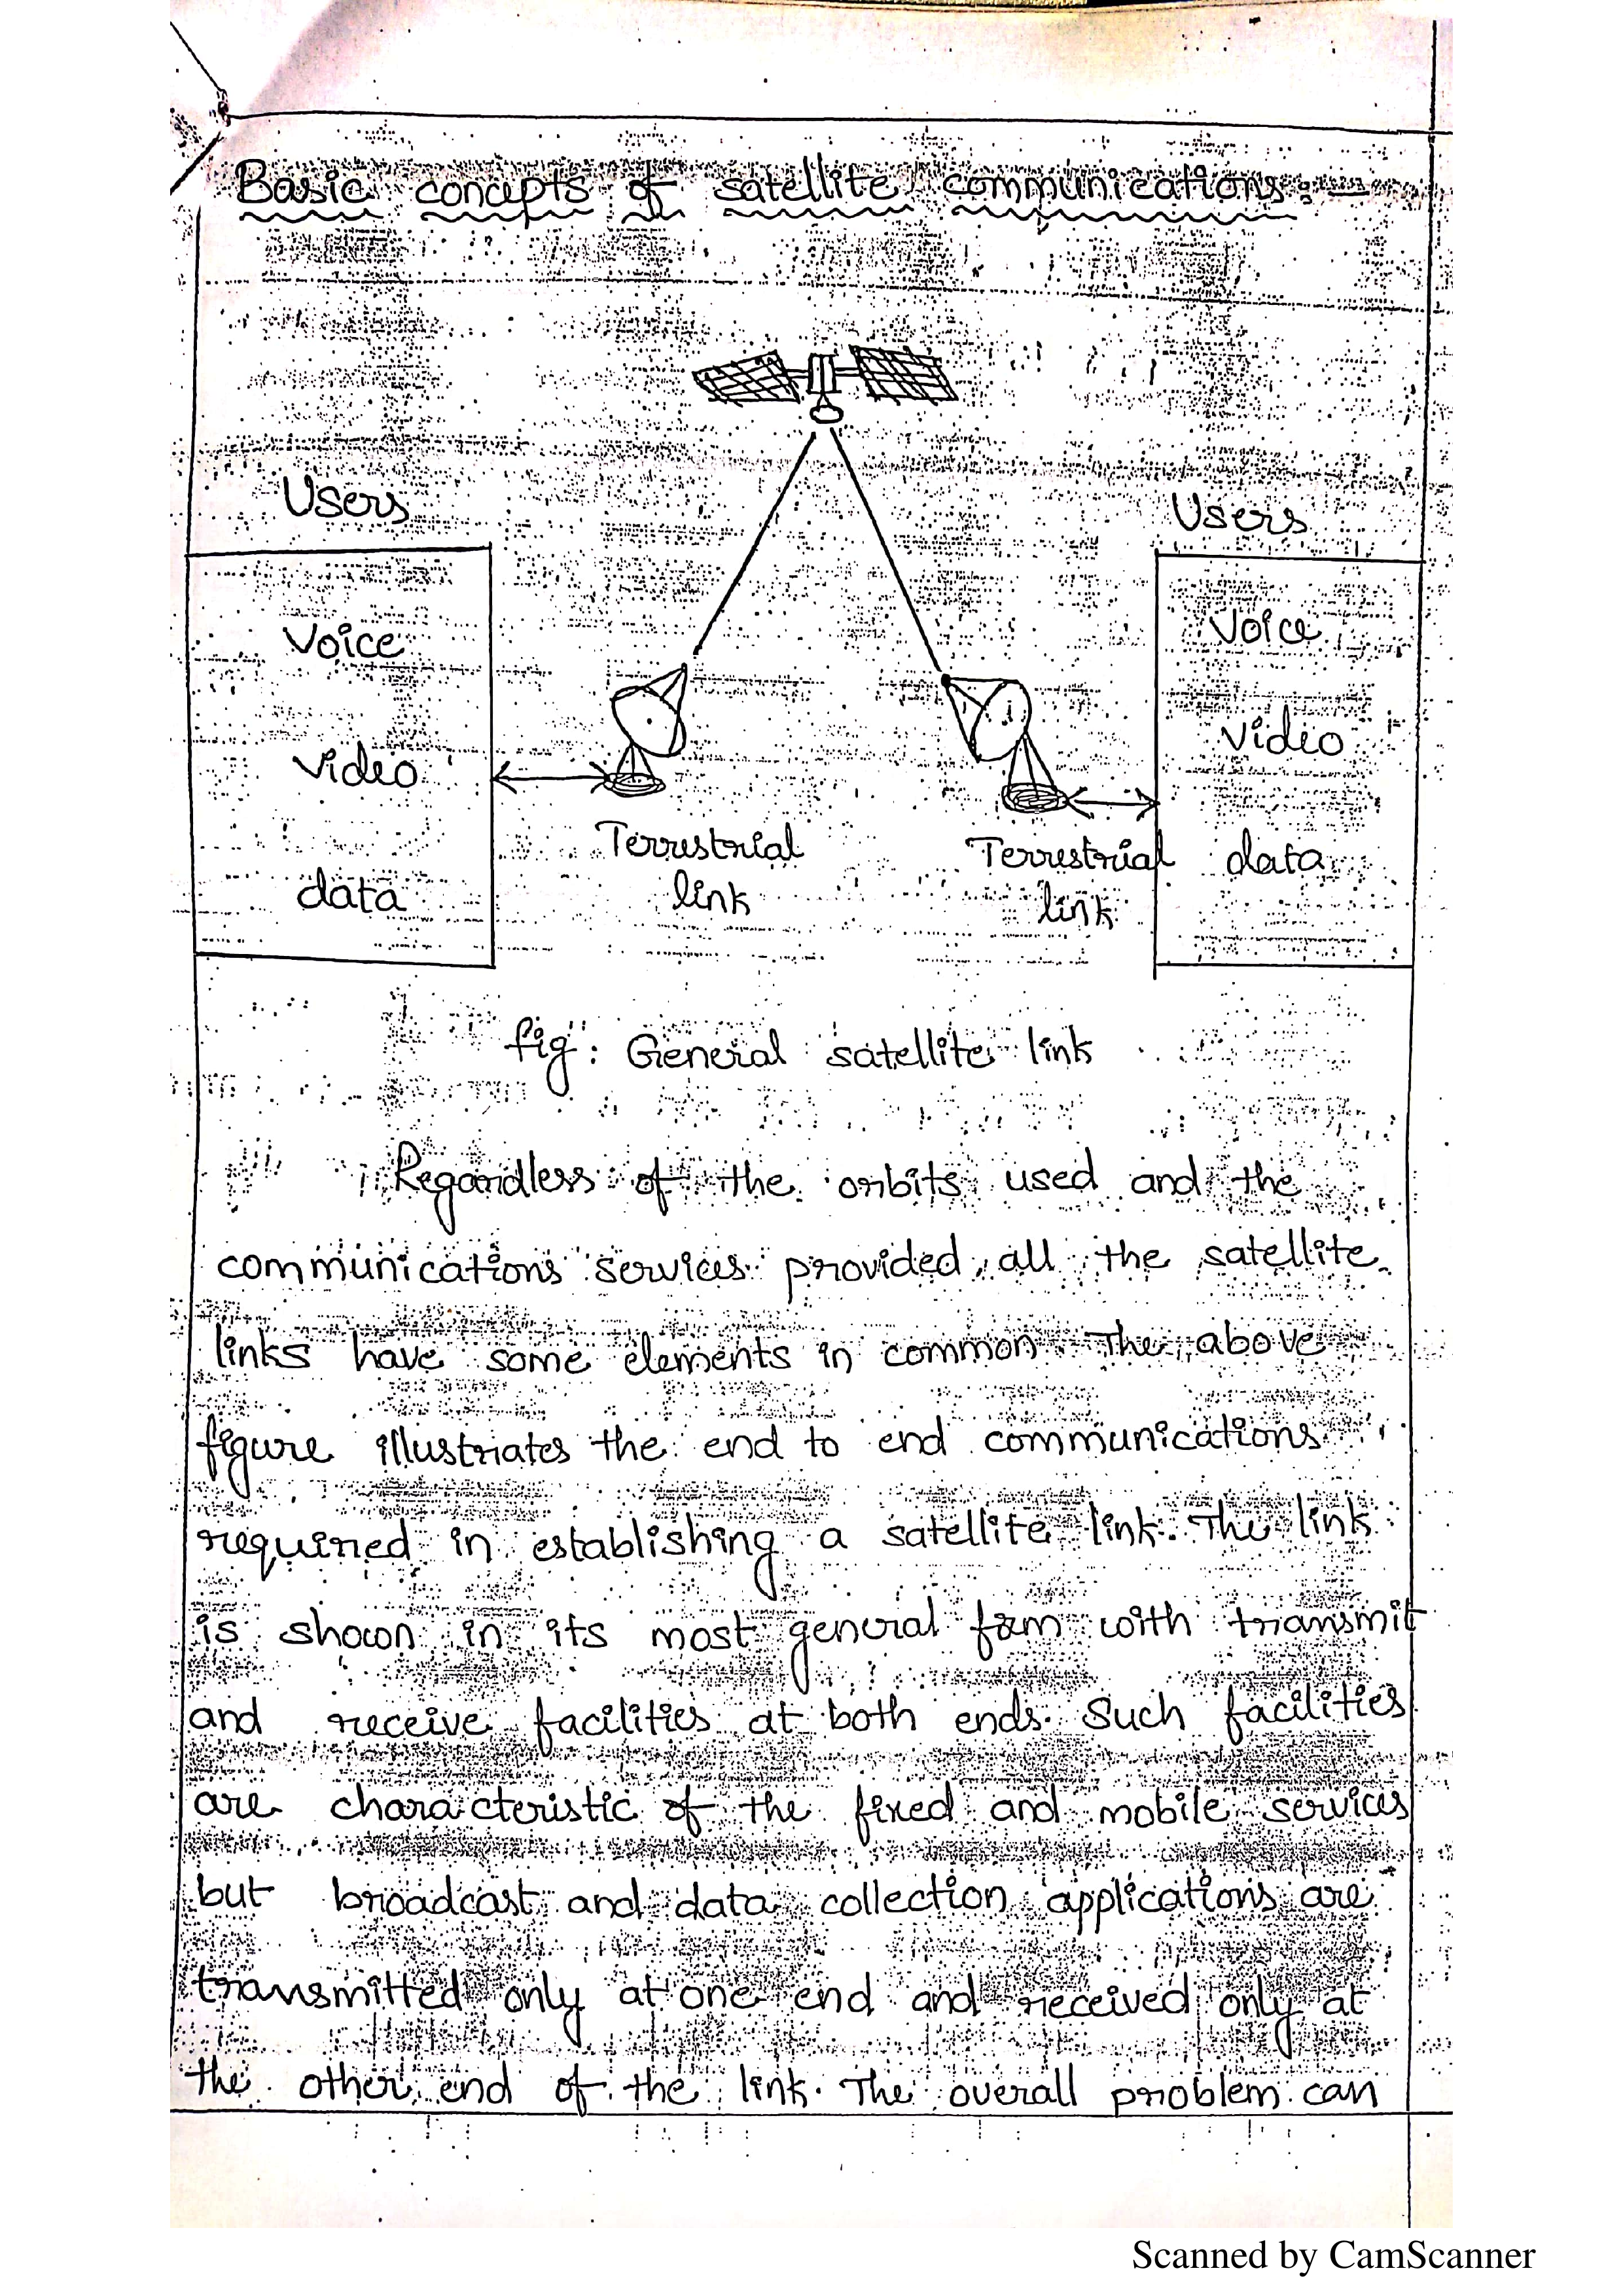 Basic concepts of satellite communications:-
Users
Users
Voice
Video
data
Voice
Video
data
Terrestrial
link
Terrestrial
link
fig: General satellite link
Regardless of the orbits used and the
communications services provided, all the satellite
links have some elements in common. The above
figure illustrates the end to end communications
required in establishing a satellite link. The link
is shown in its most general form with transmit
and receive facilities at both ends. Such facilities
are characteristic of the fixed and mobile services
but broadcast and data collection applications are
transmitted only at one end and received only at
the other end of the link. The overall problem can
Scanned by CamScanner